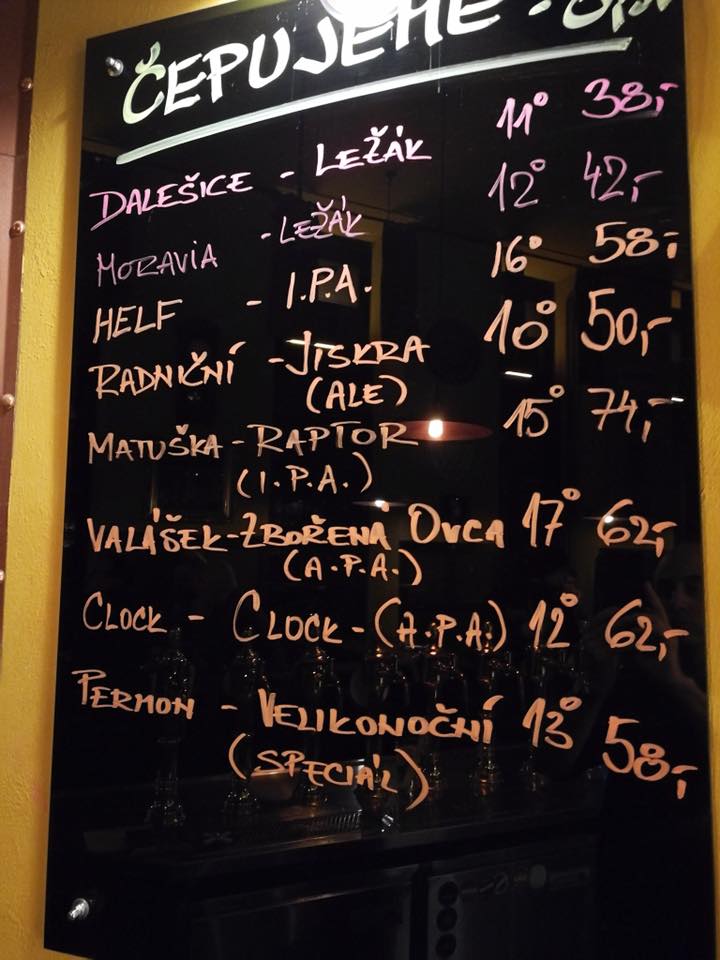 ČEPUJEME -
DALEŠICE - LEŽÁK 11° 38,-
MORAVIA - LEŽÁK 12° 42,-
HELF - I.P.A. 16° 58,-
RADNIČNÍ - JISKRA 10° 50,-
(ALE)
MATUŠKA - RAPTOR 15° 74,-
(I.P.A.)
VALÁŠEK - ZBOŘENÁ OVCA 17° 62,-
(A.P.A.)
CLOCK - CLOCK - (A.P.A.) 12° 62,-
PERMON - VELIKONOČNÍ 13° 58,-
(SPECIÁL)